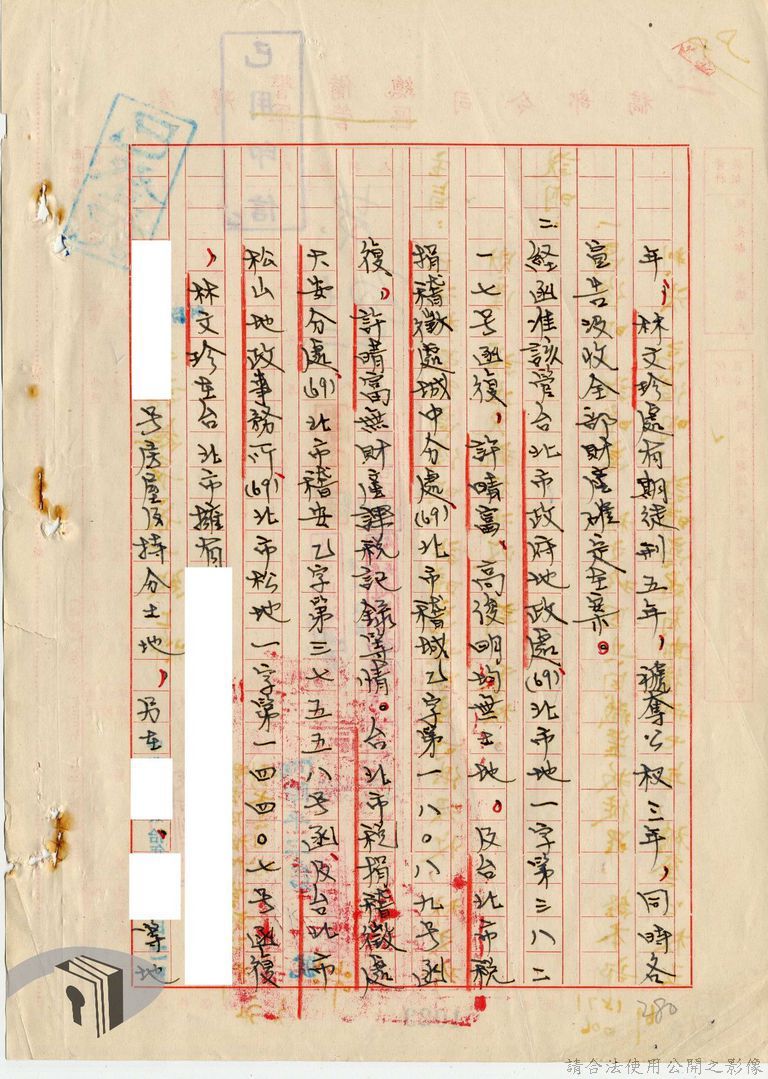 年，林文珍處有期徒刑五年，褫奪公权三年，同時各
宣告没收全部財產確定在案。
二、経函准該管台北市政府地政處(69)北市地一字第三八二
一七号函復，許晴富、高俊明均無土地。及台北市税
捐稽徵處城中分處(69)北市稽城乙字第一八〇八九号函
復，許晴富無財產課税記録等情。台北市税捐稽徵處
大安分處(69)北市稽安乙字第三七五五八号函及台北市
松山地政事務所(69)北市松地一字第一四四〇七号函復
，林文珍在台北市擁有
号房屋及持分土地，另在
、
等地
已用印信
稿部令司
總
備警
280
請合法使用公開之影像